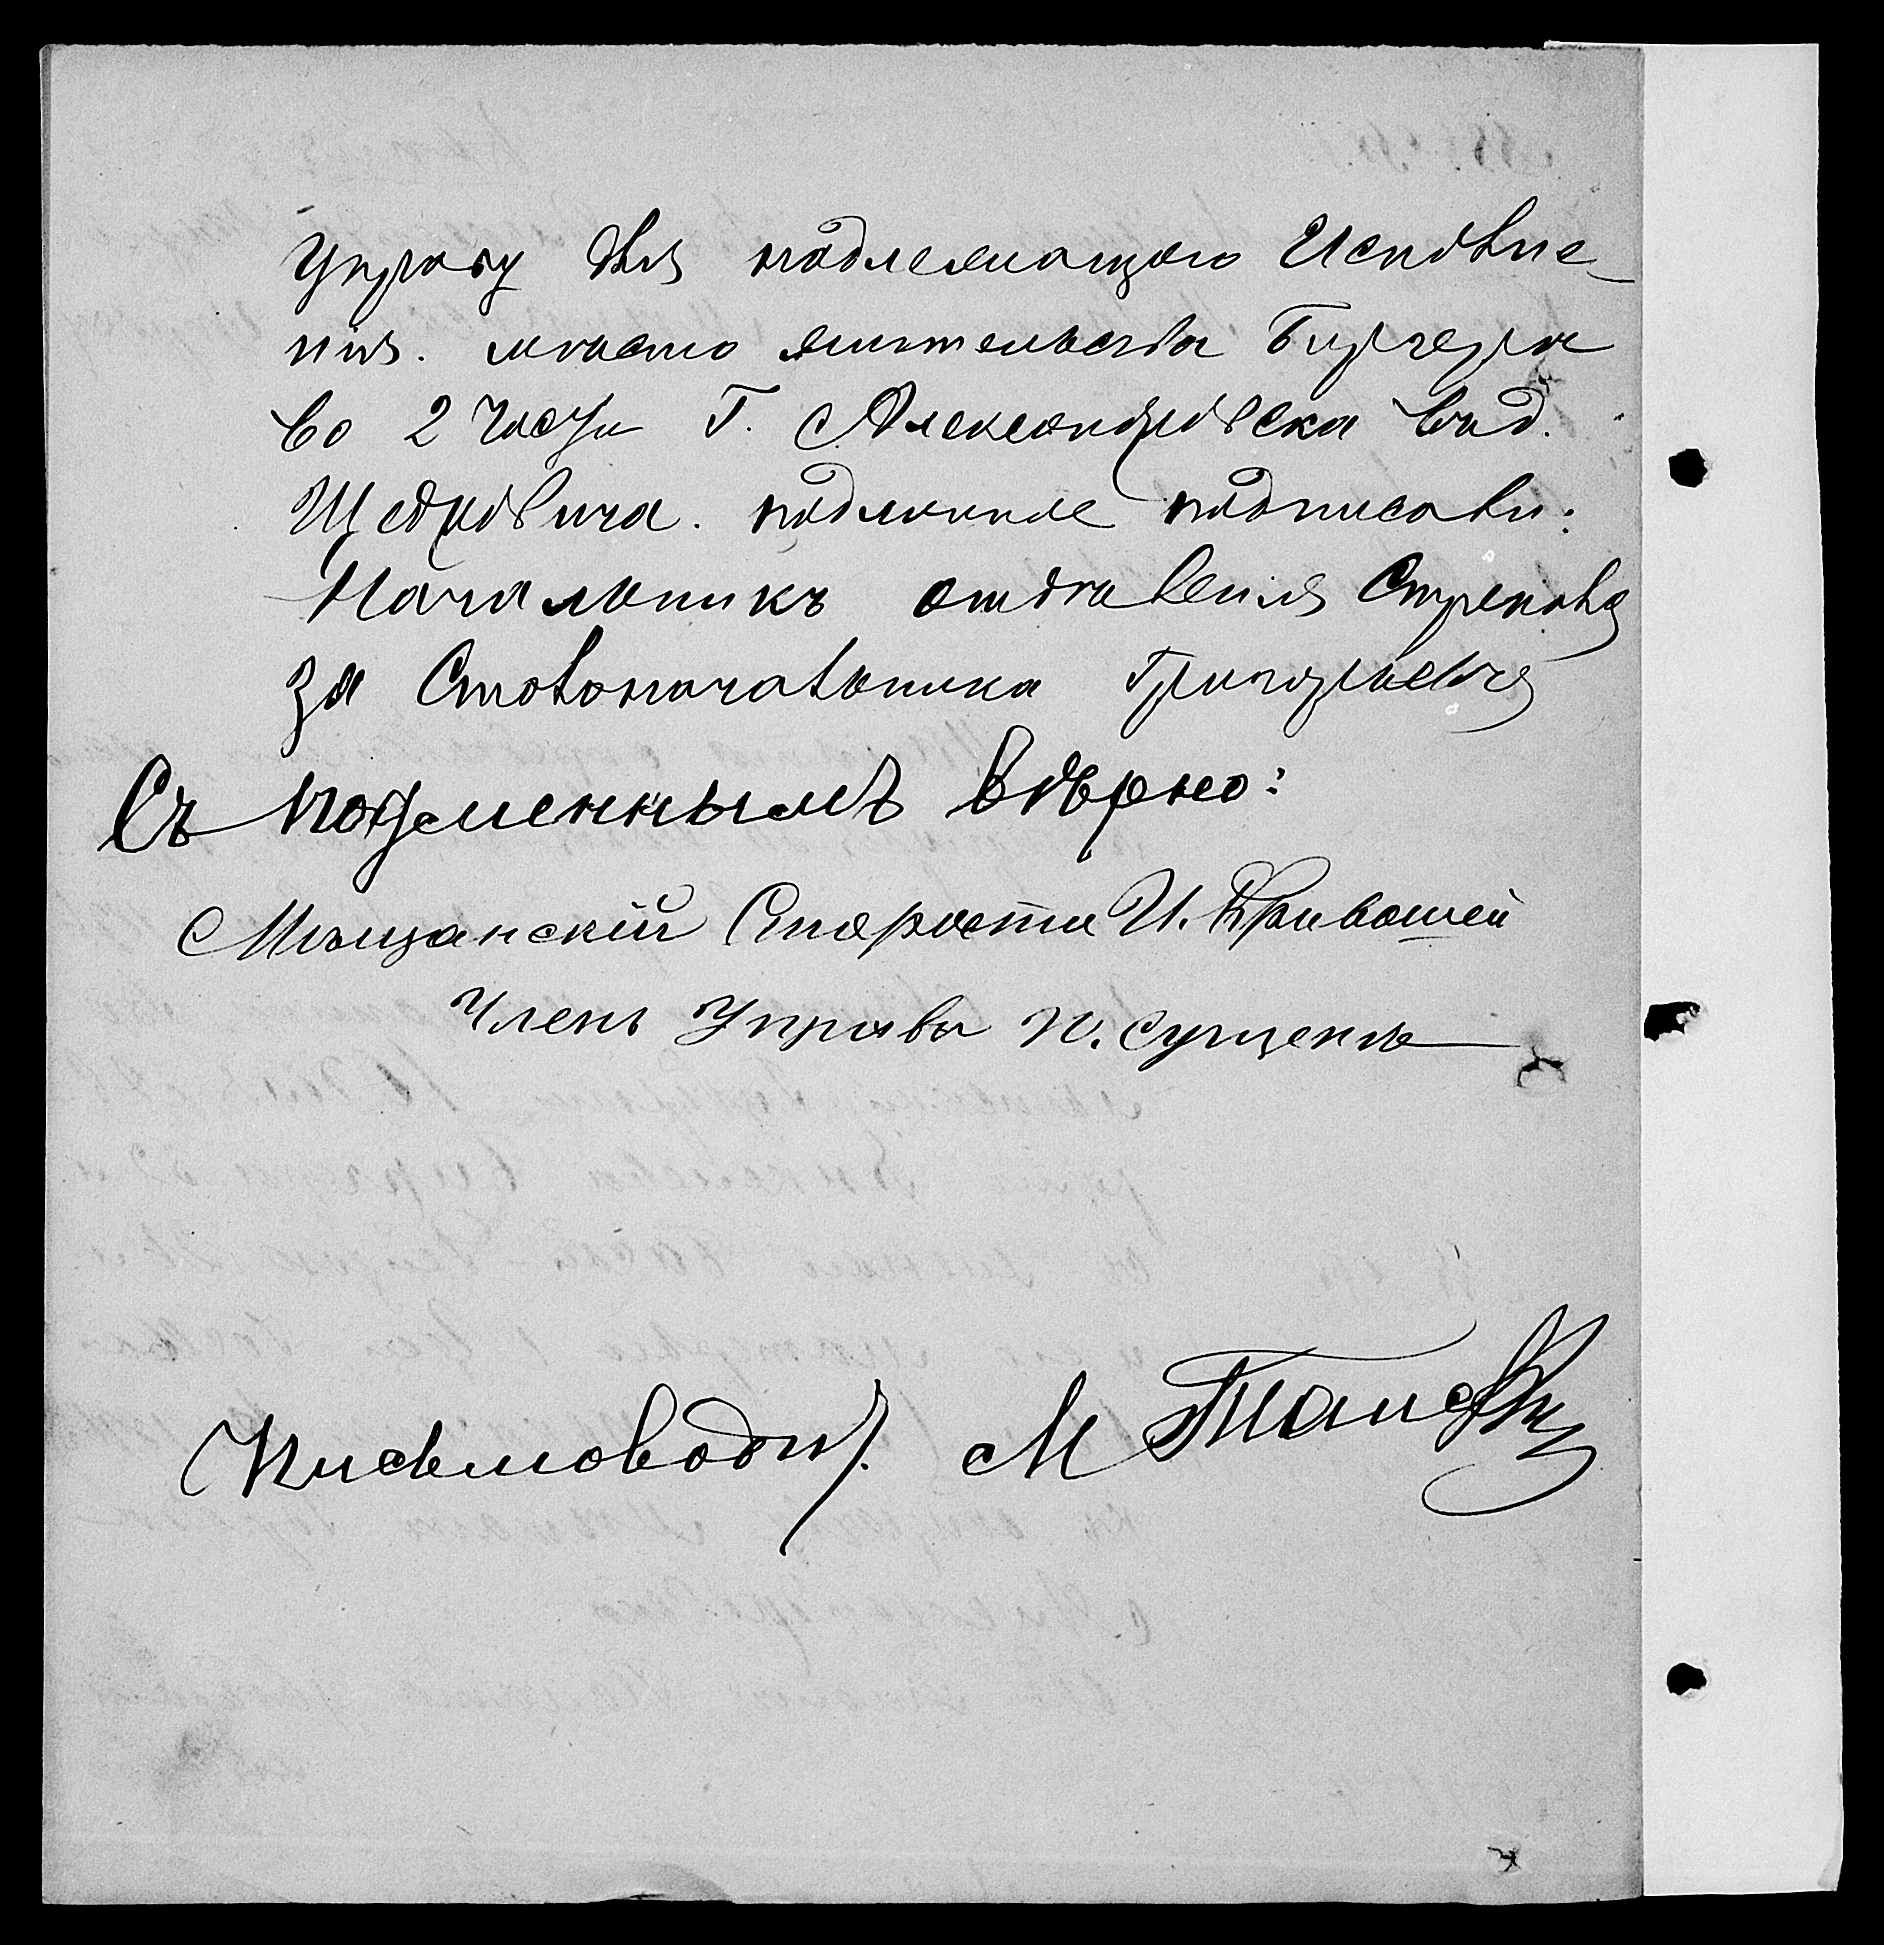 Управу для надлежащаго Исполне-
нія. место жительства Бергера
во 2 части Г. Александровска влад.
Щедровича. подлинное подписали:
Начальникъ отдѣленія
за Столоначальника Григорьевъ
Съ подлиннымъ вѣрно:
Мѣщанскій Староста И. Кривошей
Членъ Управы И. Сущенко
Письмоводит. М